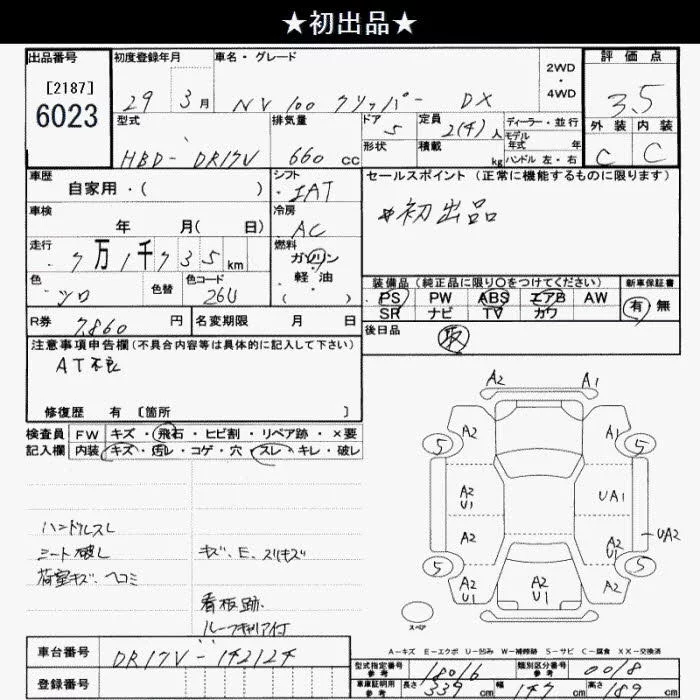 ★初出品★
出品番号 初度登録年月 車名・グレード 2WD・4WD 評価点
[2187]
6023
29 3月 NV100 クリッパー DX 3.5
型式 排気量 ドア 定員 ディーラー・並行 外装 内装
モデル年式 年
HBD-DR17V 660cc 5 2(4)人 C C
形状 積載 kg ハンドル 左・右
車歴 シフト セールスポイント(正常に機能するものに限ります)
自家用・( ) IAT
初出品
車検 冷房
年 月( 日) AC
走行 燃料
7万1千735km ガソリン・軽油
( )
色 色替 色コード 装備品(純正品に限り○をつけてください) 新車保証書
シロ 26U PS PW ABS エアB AW 有 無
SR ナビ TV カワ
R券 7,860円 名変期限 月 日 後日品 取
注意事項申告欄(不具合内容等は具体的に記入して下さい)
AT不良
修復歴 有 [箇所 ]
検査員 FW キズ・飛石・ヒビ割・リペア跡・×要
記入欄 内装 キズ・汚レ・コゲ・穴・スレ・キレ・破レ
A2 A1
A2 A1
5 5
A2 U1 UA1
A2 A2 U1 UA2
5 5
A2 U1 A2 U1 A2 U1
スペア
ハンドルスレ
シート破レ キズ、E、スリキズ
荷室キズ、ヘコミ
看板跡
ルーフキャリア付
A-キズ E-エクボ U-凹み W-補修跡 S-サビ C-腐食 XX-交換済
車台番号 DR17V-
型式指定番号 参考 18016 類別区分番号 参考 0018
登録番号
車庫証明用 参考 長さ 339cm 幅 147cm 高さ 189cm